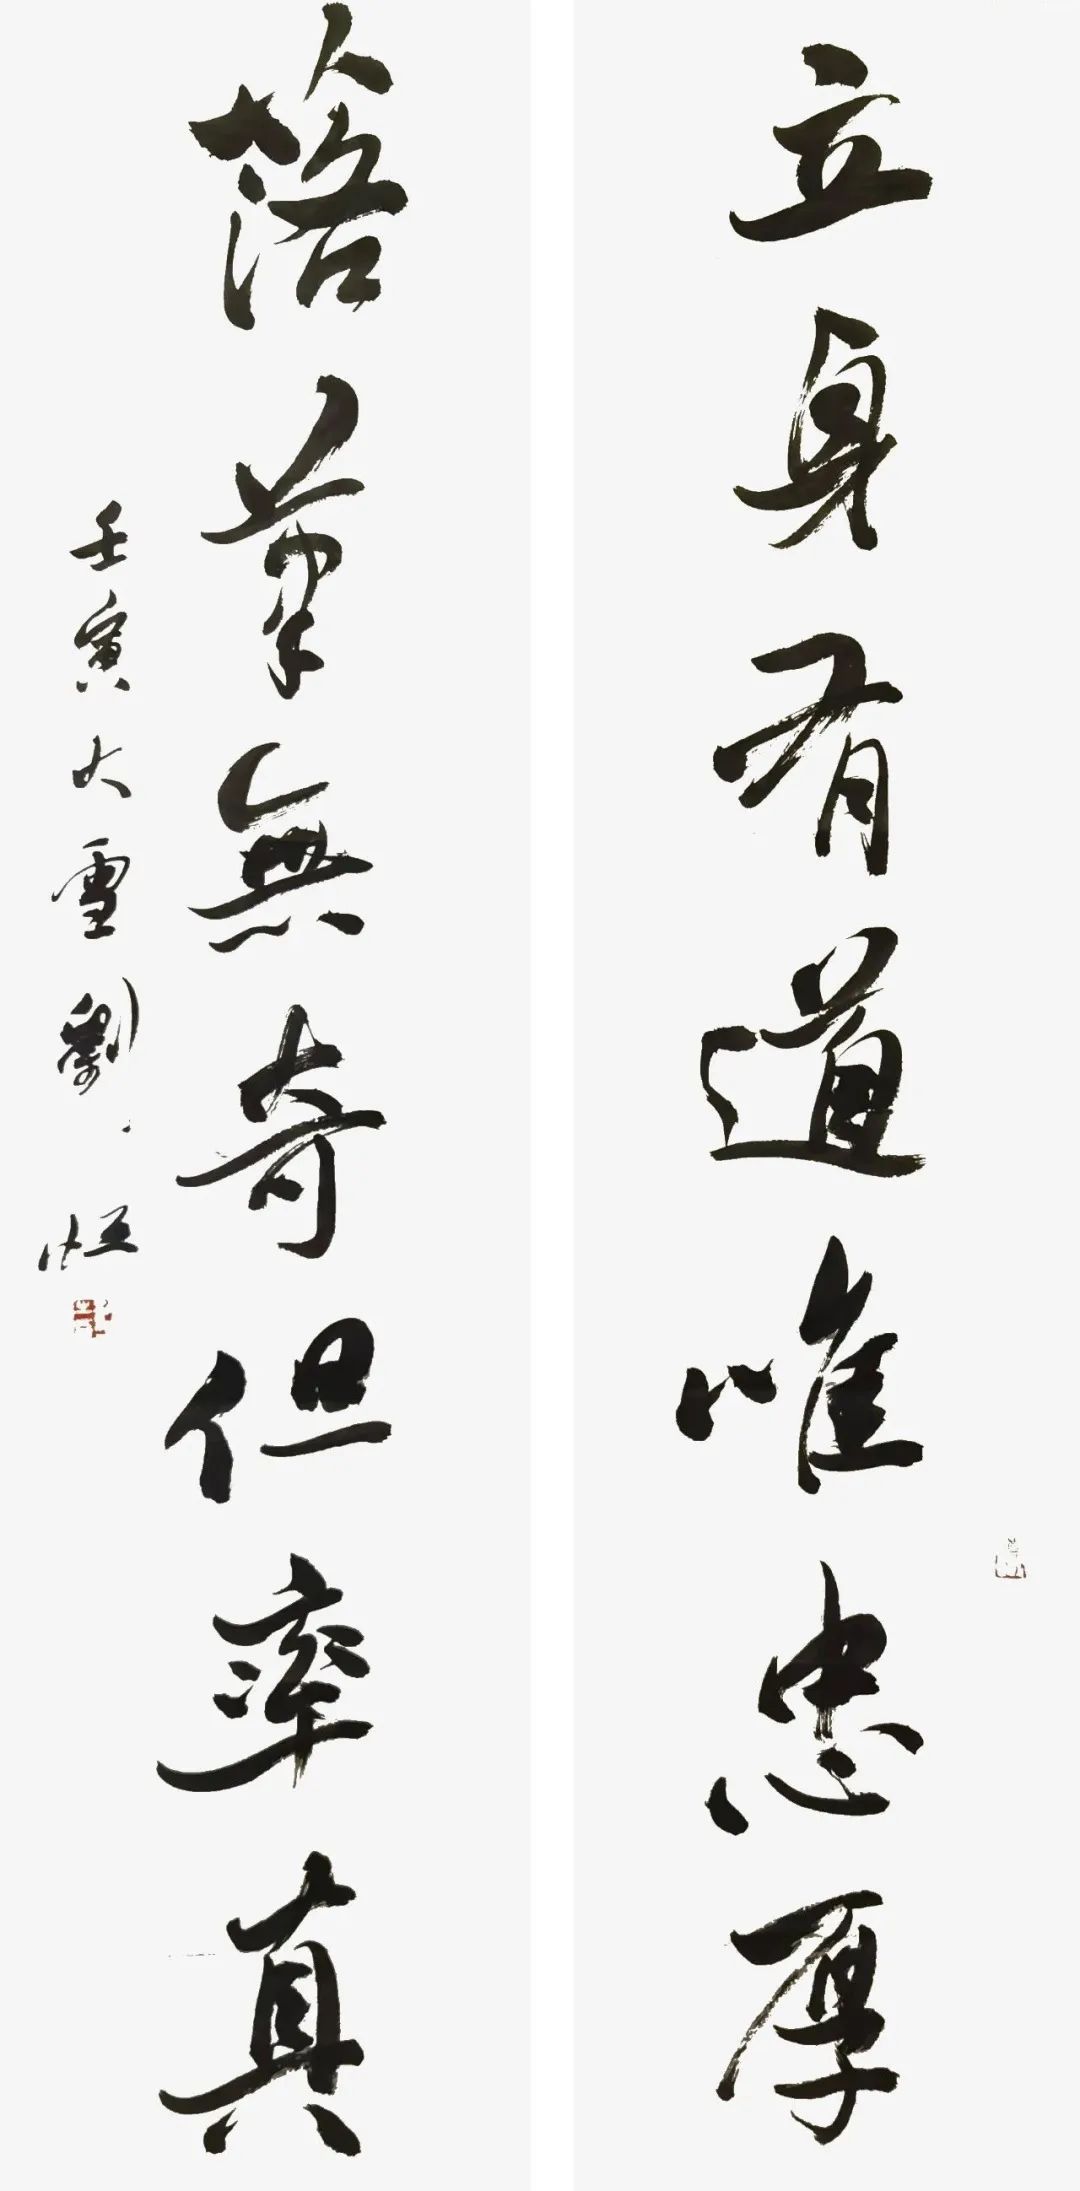 立身有道唯忠厚
落筆無奇但率真
壬寅大雪劉恒